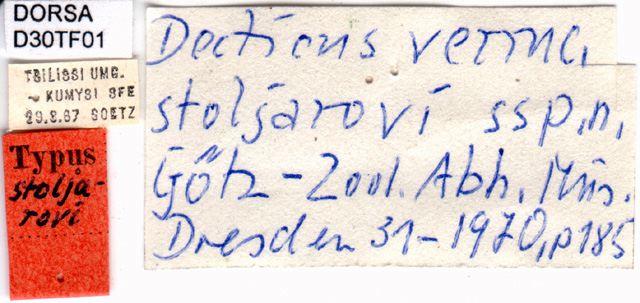 DORSA
D30TF01
TBILISSI UMG.
- KUMYSI SEE
29.8.67 GOETZ
Typus
stoljá-
rovi
Decticus verruc.
stoljárovi ssp.n.
Götz - Zool. Abh. Mus.
Dresden 31-1970, p185